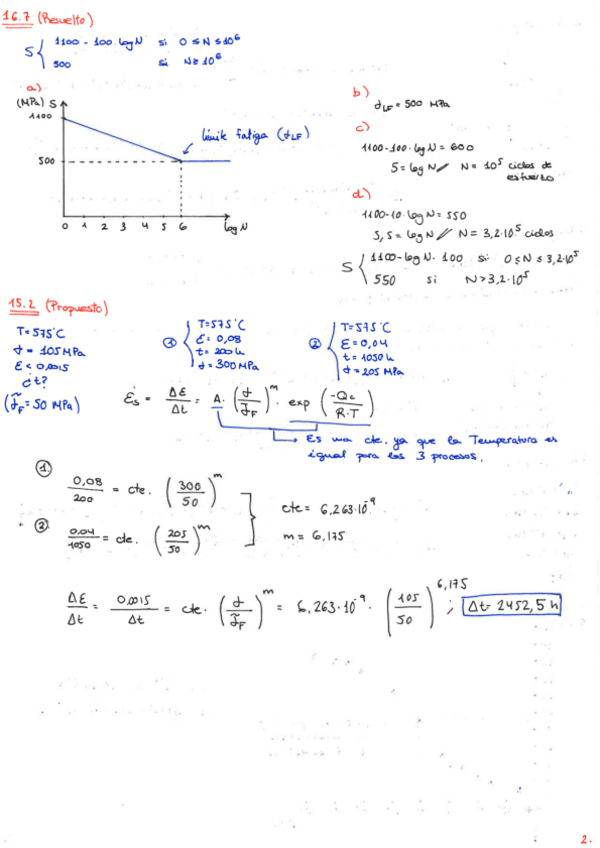 16.7 (Resuelto)
S { 1100 - 100·logN si 0 ≤ N ≤ 10⁶
500 si N ≥ 10⁶
a)
(MPa) S
1100
500
límite fatiga (σLF)
0 1 2 3 4 5 6 logN
b)
σLF = 500 MPa
c)
1100-100·logN = 600
5 = logN // N = 10⁵ ciclos de
esfuerzo
d)
1100-10·logN = 550
5,5 = logN // N = 3,2·10⁵ ciclos
S { 1100-logN·100 si 0 ≤ N ≤ 3,2·10⁵
550 si N > 3,2·10⁵
15.2 (Propuesto)
T=575°C
σ = 105 MPa
ε < 0,0015
¿t?
(σ̃F = 50 MPa)
① { T=575°C
ε = 0,08
t = 200 h
σ = 300 MPa
② { T=575°C
ε = 0,04
t = 1050 h
σ = 205 MPa
ε̇s = Δε/Δt = A · (σ/σ̃F)^m · exp (-Qc/R·T)
Es una cte. ya que la Temperatura es
igual para los 3 procesos.
① 0,08/200 = cte. (300/50)^m
② 0,04/1050 = cte. (205/50)^m
cte = 6,263·10⁻⁹
m = 6,175
Δε/Δt = 0,0015/Δt = cte · (σ/σ̃F)^m = 6,263·10⁻⁹ · (105/50)^6,175 ; Δt = 2452,5 h
2.